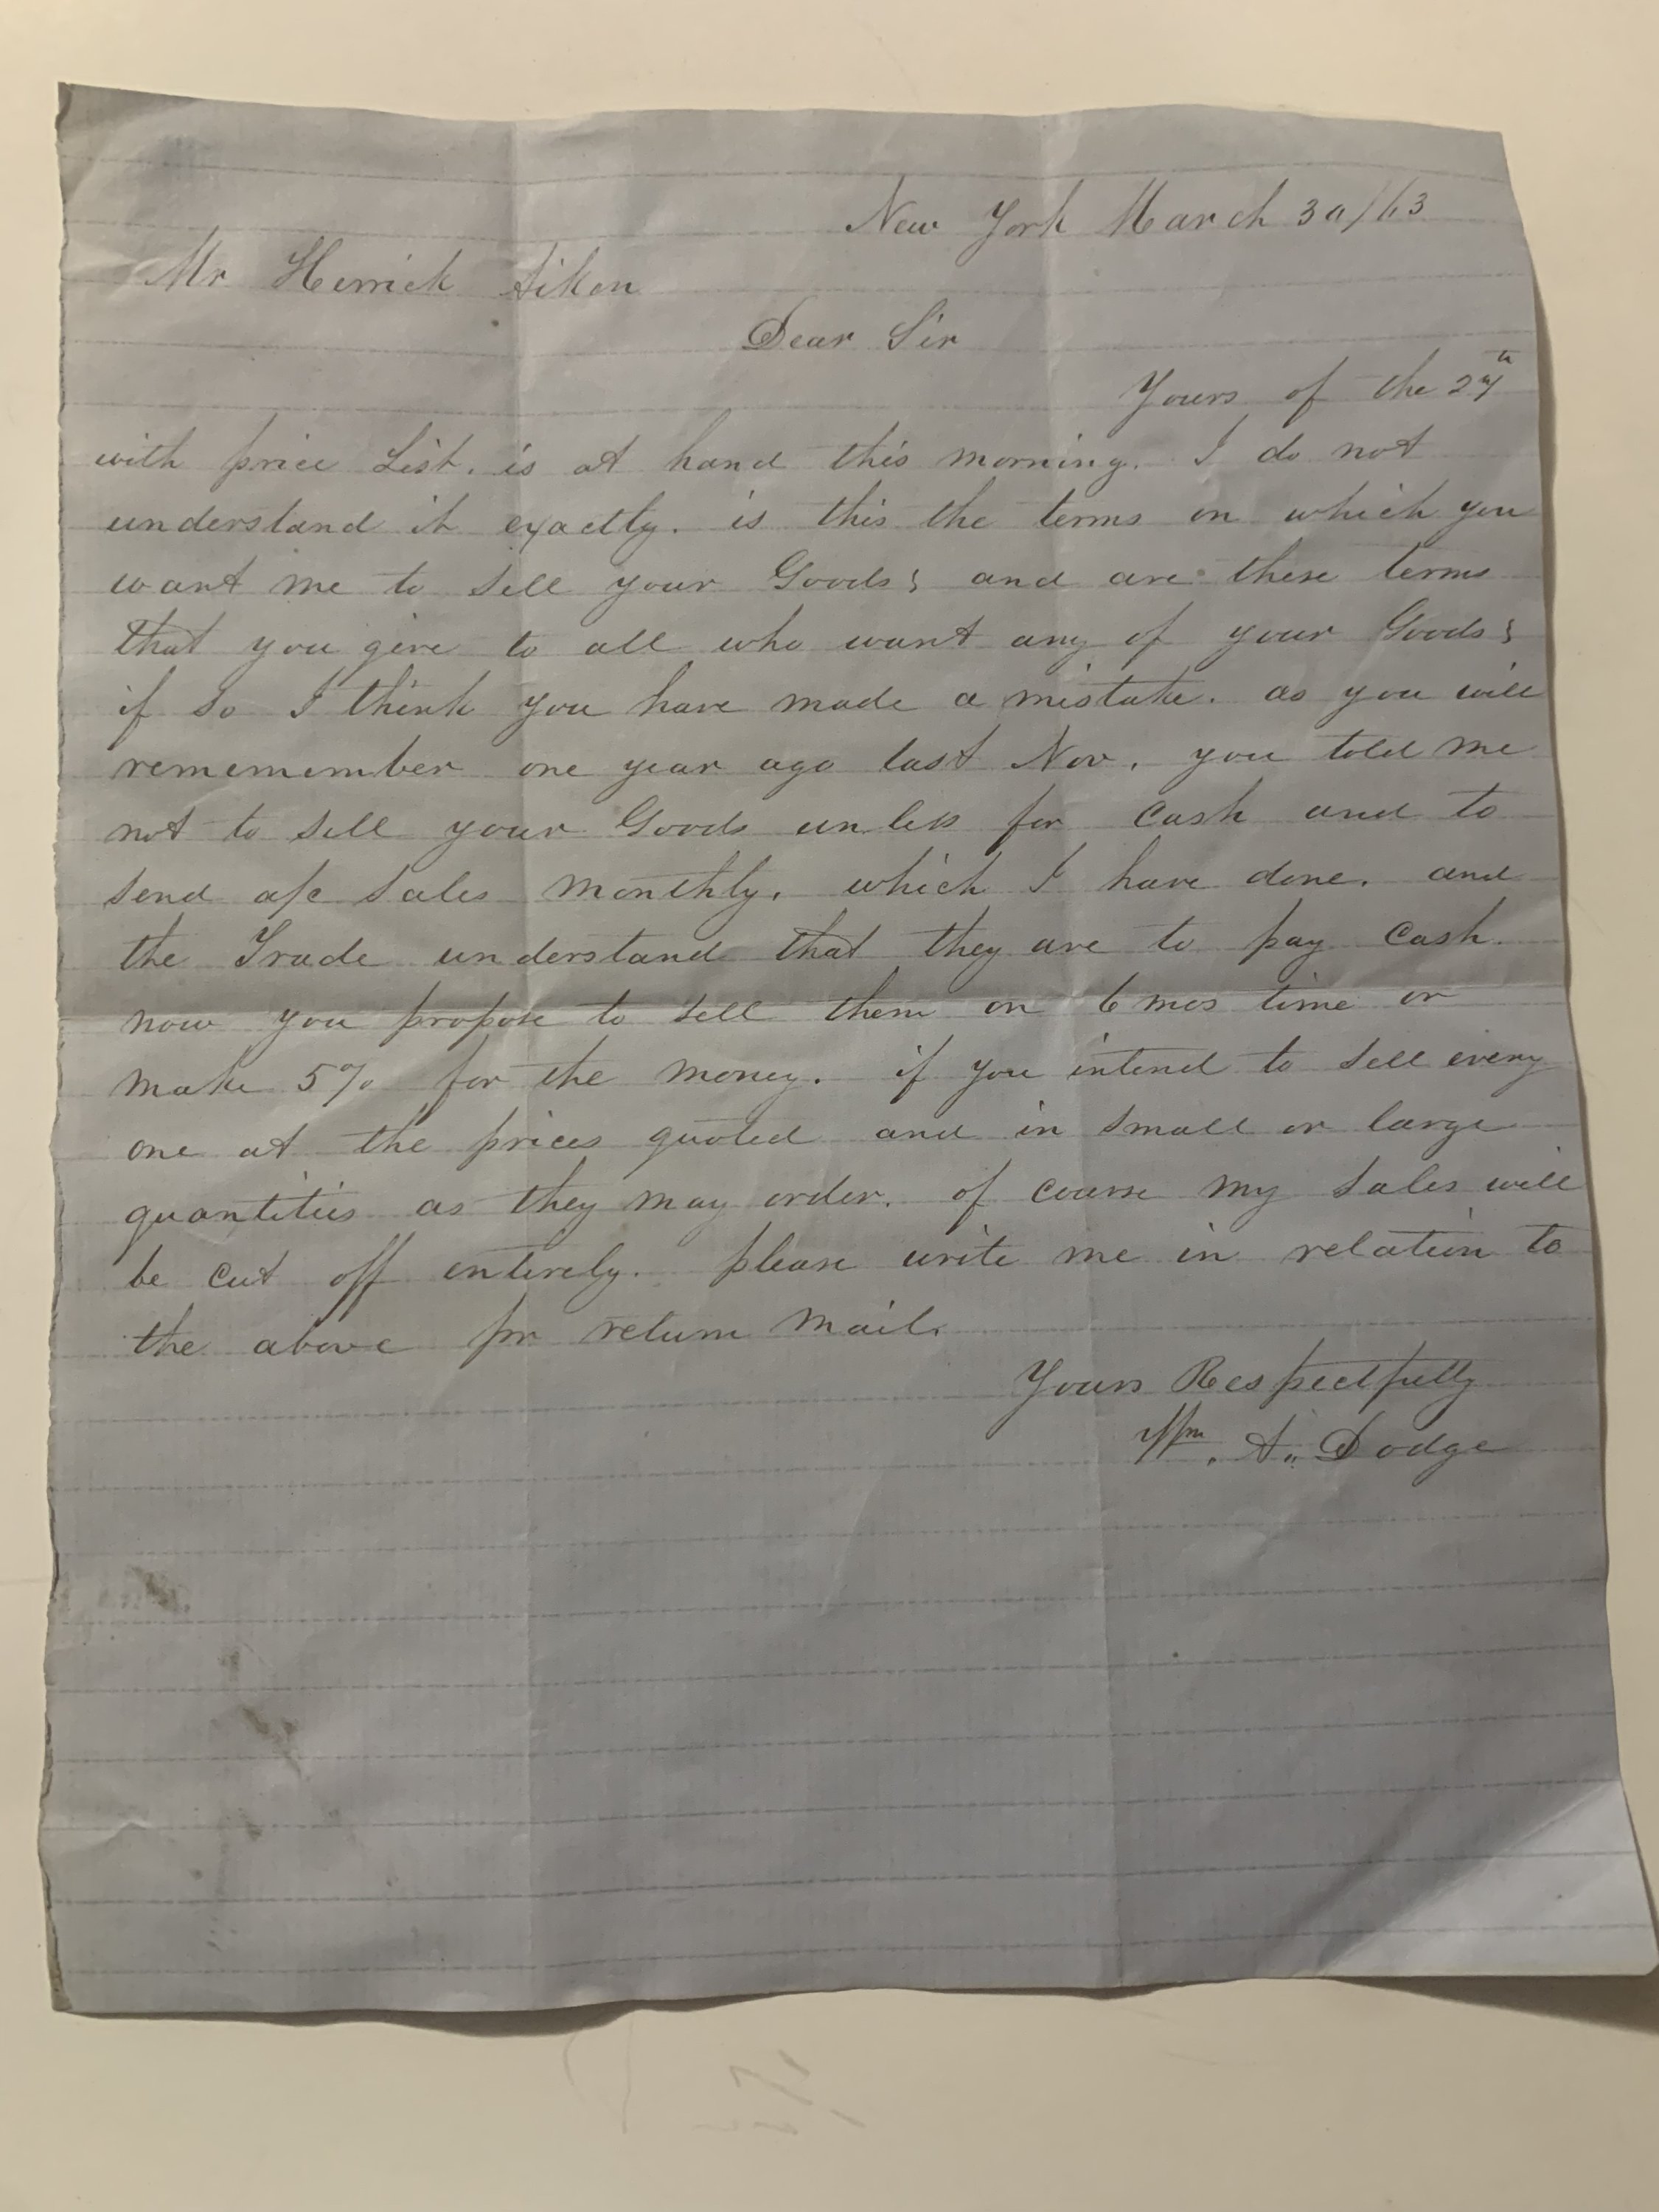 New York March 30/63
Mr Herrick Aiken
Dear Sir
Yours of the 27th
with price List. is at hand this morning. I do not
understand it exactly. is this the terms on which you
want me to sell your Goods; and are these terms
that you give to all who want any of your Goods;
if so I think you have made a mistake. as you will
rememember one year ago last Nov. you told me
not to sell your Goods unless for Cash and to
send a/c sales monthly. which I have done. and
the Trade understand that they are to pay Cash.
now you propose to sell them on 6 mos time or
make 5% for the money. if you intend to sell every
one at the prices quoted and in small or large
quantities as they may order. of course my sales will
be cut off entirely. please write me in relation to
the above pr return mail.
Yours Respectfully
Wm. A. Dodge